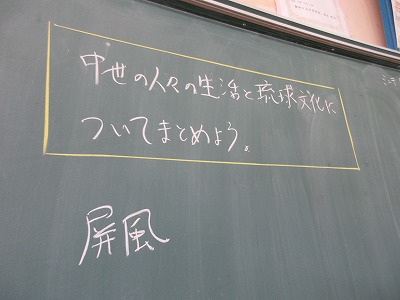 中世の人々の生活と琉球文化に
ついてまとめよう。
屏風